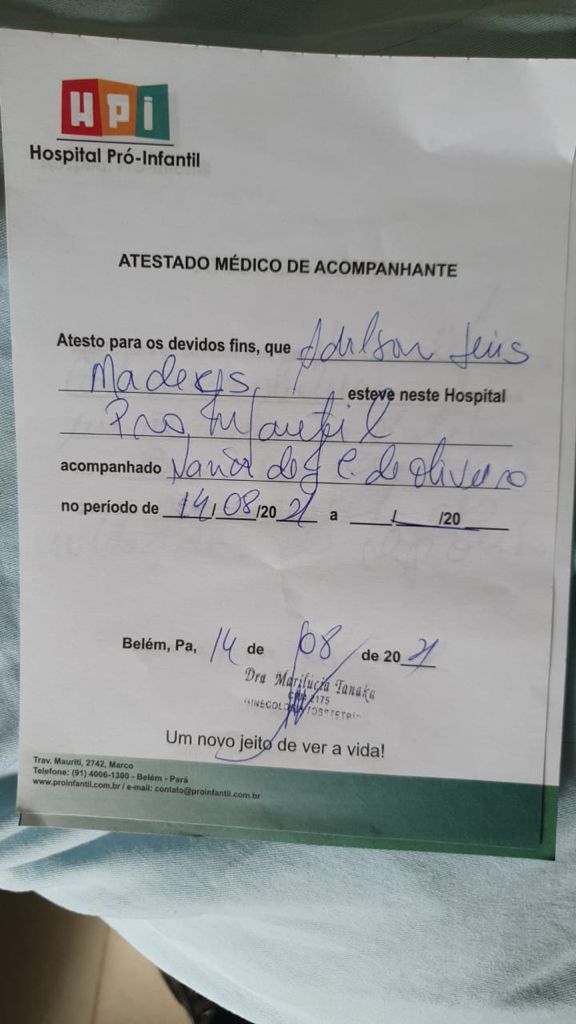 HPI
Hospital Pró-Infantil
ATESTADO MÉDICO DE ACOMPANHANTE
Atesto para os devidos fins, que Adilson
esteve neste Hospital
Pro Infantil
acompanhado de Oliveira
no período de 14/08/2021 a / /20
Belém, Pa, 14 de 08 de 2021
Dra Marilúcia Tanaka
2175
GINECOLOGIA/OBSTETRÍ
Um novo jeito de ver a vida!
Trav. Mauriti, 2742, Marco
Telefone: (91) 4006-1300 - Belém - Pará
www.proinfantil.com.br / e-mail: contato@proinfantil.com.br